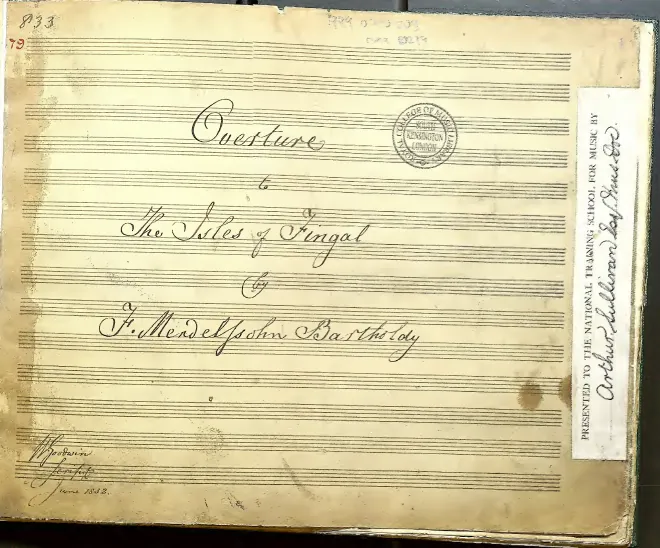 833
79
Overture
to
The Isles of Fingal
by
F. Mendelssohn Bartholdy
ROYAL COLLEGE OF MUSIC LIBRARY
SOUTH
KENSINGTON
LONDON
PRESENTED TO THE NATIONAL TRAINING SCHOOL FOR MUSIC BY
Arthur Sullivan Esq. Mus. Doc.
Goodwin
Script
June 1832.